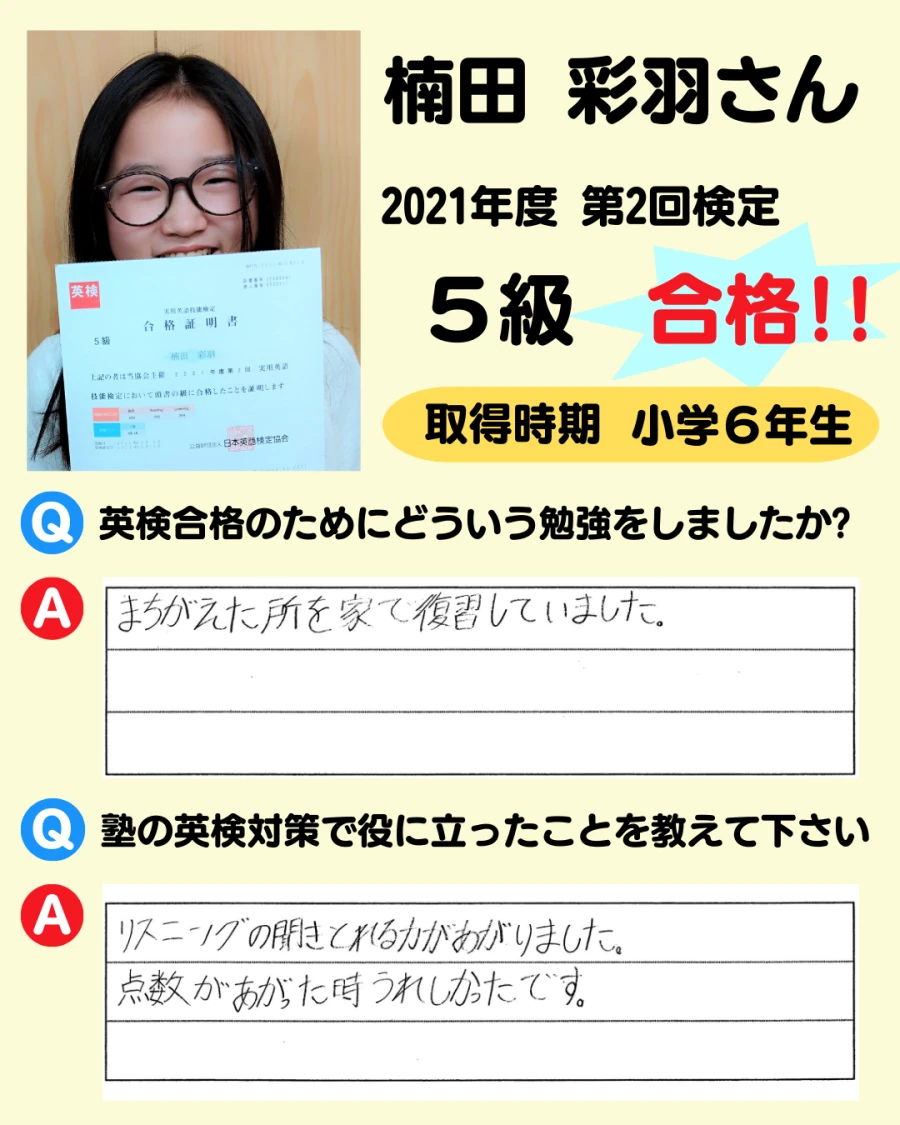 楠田 彩羽さん
2021年度 第2回検定
5級 合格!!
取得時期 小学6年生
英検
実用英語技能検定
合格証明書
5級
楠田 彩羽
上記の者は当協会主催 2021年度第2回 実用英語
技能検定において頭書の級に合格したことを証明します
公益財団法人 日本英語検定協会
Q 英検合格のためにどういう勉強をしましたか?
A まちがえた所を家で復習していました。
Q 塾の英検対策で役に立ったことを教えて下さい
A リスニングの聞きとれる力があがりました。
点数があがった時うれしかったです。